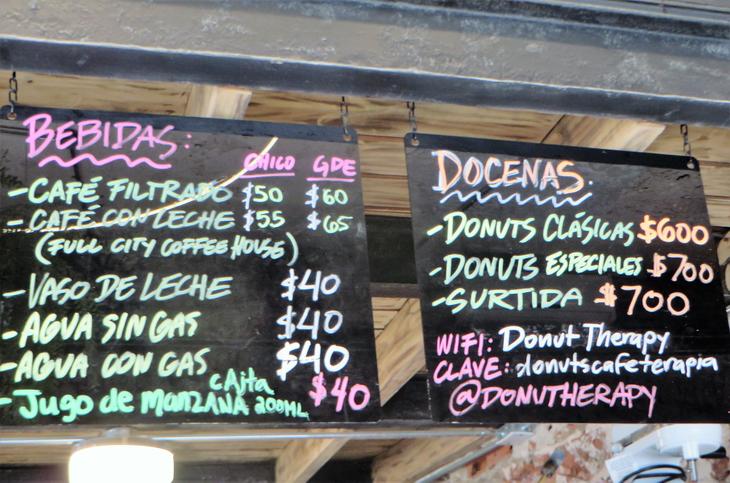 BEBIDAS:
CHICO GDE
- CAFÉ FILTRADO $50 $60
- CAFÉ CON LECHE $55 $65
(FULL CITY COFFEE HOUSE)
- VASO DE LECHE $40
- AGUA SIN GAS $40
- AGUA CON GAS $40
- Jugo de MANZANA cAjita 200ML $40
DOCENAS.
- DONUTS CLÁSICAS $600
- DONUTS ESPECIALES $700
- SURTIDA $700
WIFI: Donut Therapy
CLAVE: donutscafeterapia
@DONUTHERAPY